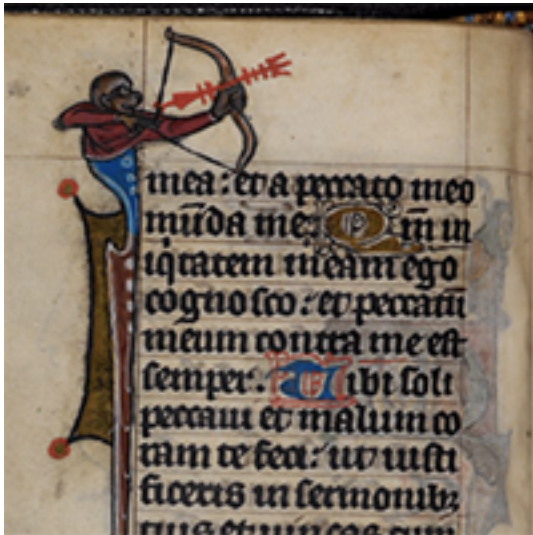 mea: et a peccato meo
mūda me: Qm̄ in
iq̇tatem meam ego
cognosco: et peccatū
meum contra me est
semper. Tibi soli
peccaui et malum co
ram te feci: ut iusti
ficeris in sermonibꝫ
tuis et uincas cum